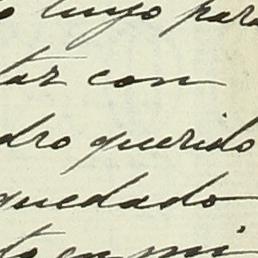 o tuyo para
tar con
dro querido
quedado
to en mi